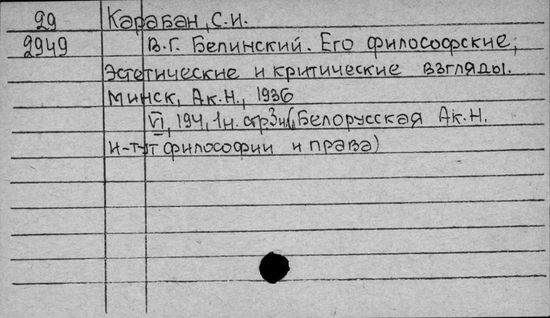 29 Карабан, С.И.
2949 В.Г. Белинский. Его философские,
эстетические и критические взгляды.
Минск, Ак.Н., 1936
VI, 194, 1н. стр. (Белорусская Ак.Н.
и-тут философии и права)